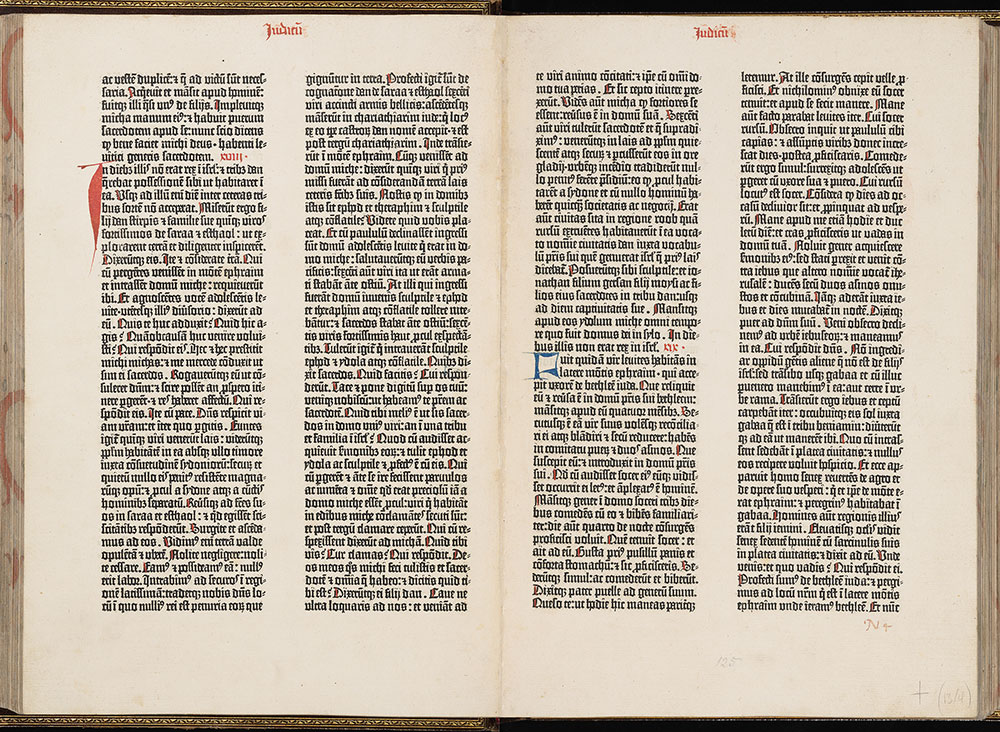 Judicū
ac vestē duplicē: ⁊ q̄ ad victū sūt neces-
saria. Acq̄euit et māsit apud hominē:
fuitq; illi q̄si un9 de filijs. Impleuitq;
micha manum ei9: ⁊ habuit puerum
sacerdotem apud se: nunc scio dicens
q̄ bene faciet michi deus · habenti le-
vitici generis sacerdotem. xviii ·
In dieb9 illis nō erat rex ī isrl': ⁊ trib9 dan
q̄rebat possessionē sibi ut habitaret ī
ea. Usq; ad illū eni diē inter ceteras tri-
bus sortē nō acceperat. Miserūt ergo fi-
lij dan stirpis ⁊ familie sue quīq; viros
fortissimos de saraa ⁊ esthaol: ut ex-
plorarent terrā et diligenter inspicerēt.
Dixerūtq; eis. Ite ⁊ cōsiderate terrā. Qui
cū pergētes venissēt in mōtē ephraim
et intrassēt domū miche: requieuerūt
ibi. Et agnoscētes vocē adolescētis le-
uite · utētesq; illi9 diuersorio: dixerūt ad
eū. Quis te huc adduxit? Quid hic a-
gis? Quāobcausā huc venire volui-
sti? Qui respōdit eis. Hec ⁊ hec prestitit
michi michas: ⁊ me mercede cōduxit ut
sim ei sacerdos. Rogauerūtq; eū ut cō-
suleret dūm: ⁊ scire possēt an ꝓspero iti-
nere ꝑgerēt: ⁊ res haberet affectū. Qui re-
spōdit eis. Ite cū pace. Dn̄s respicit vi-
am vrām: et iter quo pgitis. Euntes
igit̄ quīq; viri venerūt lais: viderūtq;
pp̄lm habitātē in ea absq; ullo timore
iuxta cōsuetudinē sydonioꝝ: securū et
quietū nullo eis penit9 resistēte magna-
rūq; opū: ⁊ ꝓcul a sydone atq; a cūctis
hominib9 sepatū. Reūsiq; ad frēs su-
os in saraa et esthaol: ⁊ qd egissēt sci-
scitātib9 respōderūt. Surgite et ascēda-
mus ad eos. Vidim9 eni terrā valde
opulētā ⁊ uberē. Nolite negligere: noli-
te cessare. Eam9 ⁊ possideam9 eā: null9
erit labor. Intrabim9 ad securos ī regi-
onē latissimā: tradetq; nobis dn̄s lo-
cū ī quo nulli9 rei est penuria eoꝝ que
gignūtur in terra. Profecti igit̄ sūt de
cognatōe dan de saraa ⁊ esthaol sexcēti
viri accincti armis bellicis: ascēdētesq;
māserūt in chariathiarim iude: q̄ loc9
ex eo tꝑe castroꝝ dan nomē accepit · ⁊ est
post tergū chariathiarim. Inde trāsie-
rūt ī mōtē ephraim. Cūq; venissēt ad
domū miche: dixerūt quīq; viri q̄ pri9
missi fuerāt ad cōsiderādā terrā lais
ceteris frib9 suis. Nostis q̄ in domib9
istis sit ephod et theraphim ⁊ sculptile
atq; cōflatile? Videte quid vobis pla-
ceat. Et cū paululū declinassēt ingressi
sūt domū adolescētis leuite q̄ erat in do-
mo miche: salutauerūtq; eū verbis pa-
cificis: sexcēti aūt viri ita ut erāt arma-
ti stabāt āte ostiū. At illi qui ingressi
fuerāt domū iuuenis sculptile ⁊ ephod
et theraphim atq; cōflatile tollere nite-
bātur: ⁊ sacerdos stabat āte ostiū: sexcē-
tis viris fortissimis haut ꝓcul expectā-
tib9. Tulerūt igit̄ q̄ intrauerāt sculptile
ephod ⁊ ydola atq; cōflatile. Quib9 di-
xit sacerdos. Quid facitis? Cui respon-
derūt. Tace: et pone digitū sup os tuū:
veniq; nobiscū: ut habeam9 te prēm ac
sacerdotē. Quid tibi meli9 ē: ut sis sacer-
dos in domo uni9 viri: an ī una tribu
et familia ī isrl'? Quod cū audisset ac-
quieuit sermonib9 eoꝝ: ⁊ tulit ephod et
ydola ac sculptile ⁊ ꝓfect9 ē cū eis. Qui
cū pgerēt ⁊ āte se ire fecissent paruulos
ac iumēta ⁊ omē qd erat preciosū: iā a
domo miche essēt ꝓcul: viri q̄ habitāt
in edibus miche cōclamātes secuti sūt:
et post tergū clamare ceperūt. Qui cū re-
spexissent dixerūt ad michā. Quid tibi
vis? Cur clamas? Qui respōdit. De-
os meos q̄s michi feci tulistis et sacer-
dotē ⁊ omia q̄ habeo: ⁊ dicitis quid ti-
bi est? Dixerūtq; ei filij dan. Caue ne
ultra loquaris ad nos: et veniāt ad
Judicū
te viri animo cōcitati: ⁊ ipe cū omī do-
mo tua pereas. Et sic cepto itinere pre-
xerūt. Vidēs aūt micha q̄ fortiores se
essent: reūsus ē in domū suā. Sexcēti
aūt viri tulerūt sacerdotē et q̄ supradi-
xim9: veneruntq; in lais ad ppl̄m quie-
scentē atq; securū ⁊ ꝑcusserūt eos in ore
gladij · urbēq; incēdio tradiderūt nul-
lo penit9 ferēte p̄sidiū: eo q̄ ꝓcul habi-
tarēt a sydone et cū nullo hominū ha-
berēt quicq̄ societatis ac negocij. Erat
aūt ciuitas sita in regione roob quā
rursū extruētes habitauerūt ī ea voca-
to nomīe ciuitatis dan iuxta vocabu-
lū p̄ris sui quē genuerat isrl' q̄ pri9 lais
dicebat̄. Posueruntq; sibi sculptile: et io-
nathan filium gersan filij moysi ac fi-
lios eius sacerdotes in tribu dan: usq;
ad diem captiuitatis sue. Mansitq;
apud eos ydolum miche omni tempo-
re quo fuit domus dei in sylo. In die-
bus illis non erat rex in isrl'. xix ·
Fuit quidā vir leuites habitās in
latere mōtis ephraim · qui acce-
pit uxorē de bethleē iuda. Que reliquit
eū ⁊ reūsa ē in domū p̄ris sui bethleem:
māsitq; apud eū quatuor mēsib9. Se-
cutusq; ē eā vir suus volēsq; recōcilia-
ri ei atq; blādiri ⁊ secū reducere: habēs
in comitatu puerū ⁊ duos asinos. Que
suscepit eū: ⁊ introduxit in domū p̄ris
sui. Nō cū audisset socer ei9 eūq; vidis-
set occurrit ei let9: et āplexat9 ē hominē.
Māsitq; gener ī domo soceri trib9 die-
bus comedēs cū eo ⁊ bibēs familiari-
ter: die aūt quarto de nocte cōsurgēs
proficisci voluit. Quē tenuit socer: et
ait ad eū. Gusta pri9 pusillū panis et
cōforta stomachū: ⁊ sic ꝓficisceris. Se-
derūtq; simul: ac comederūt et biberūt.
Dixitq; pater puelle ad generū suum.
Queso te: ut hodie hic maneas pariterq;
letemur. At ille cōsurgēs cepit velle ꝓ-
ficisci. Et nichilomin9 obnixe eū socer
tenuit: et apud se fecit manere. Mane
aūt facto parabat leuites iter. Cui socer
rursū. Obsecro inquit ut paululū cibi
capias: ⁊ assūptis virib9 donec incre-
scat dies · postea ꝓficiscaris. Comede-
rūt ergo simul: surrexitq; adolescēs ut
pgeret cū uxore sua ⁊ puero. Cui rursū
locut9 est socer. Cōsidera q̄ dies ad oc-
casū decliuior sit: et ꝓpinquat ad vespe-
rū. Mane apud me etiā hodie et duc
letū diē: et cras ꝓficisceris ut vadas in
domū tuā. Noluit gener acquiescere
sermonib9 ei9: sed statī prexit et venit cō-
tra iebus que altero nomīe vocat̄ ihe-
rusalē: ducēs secū duos asinos onu-
stos et cōcubinā. Iāq; aderāt iuxta ie-
bus et dies mutabat̄ in noctē. Dixitq;
puer ad dūm suū. Veni obsecro decli-
nem9 ad urbē iebuseoꝝ: ⁊ maneam9
in ea. Cui respōdit dūs. Nō ingredi-
ar oppidū gentis aliene q̄ nō est de filijs
isrl': sed trāsibo usq; gabaa et cū illuc
puenero manebim9 ī ea: aut certe ī ur-
be rama. Trāsierūt ergo iebus et ceptū
carpebāt iter: occubuitq; eis sol iuxta
gabaa q̄ est ī tribu beniamin: diuterūt-
q; ad eā ut manerēt ibi. Quo cū intras-
sent sedebāt ī platea ciuitatis: ⁊ nullus
eos recipere voluit hospicio. Et ecce ap-
paruit homo senex reuertēs de agro et
de opere suo vesperi: q̄ et ipe de mōte e-
rat ephraim: ⁊ peregrin9 habitabat ī
gabaa. Homines aūt regionis illi9
erāt filij iemini. Eleuatisq; oclis vidit
senex sedentē hominē cū sarcinulis suis
in platea ciuitatis: ⁊ dixit ad eū. Unde
venis: et quo vadis? Qui respōdit ei.
Profecti sum9 de bethleē iuda: ⁊ pergi-
mus ad locū nrm̄ q̄ est ī latere mōtis
ephraim unde ieram9 bethleē. Et nūc
125
+ (13/4)